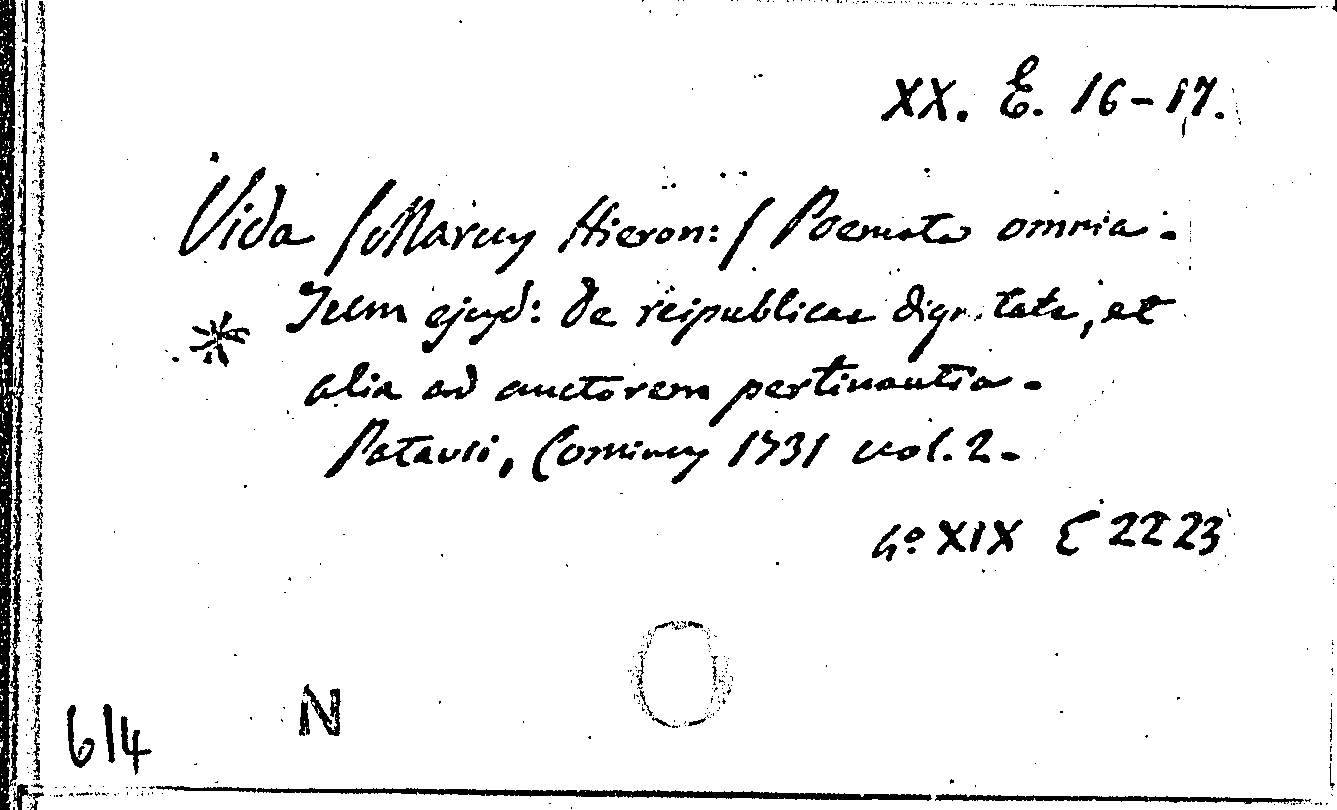 XX. E. 16-17.
Vida /Marcus Hieron:/ Poemata omnia.
* Tum ejusd: de reipublicae dignitate, et
alia ad auctorem pertinantia.
Patavii, Cominus 1731 vol. 2.
4º XIX E 22 23
N
614